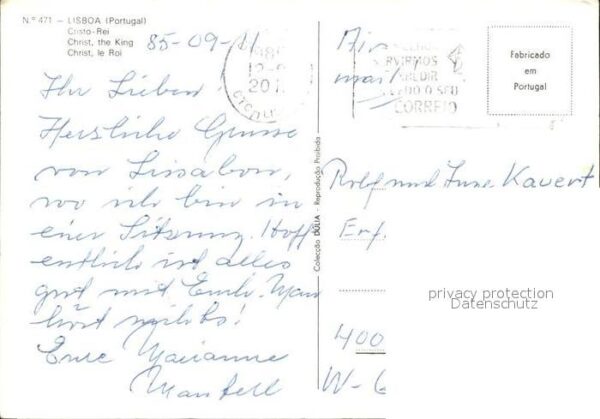 N.º 471 – LISBOA (Portugal)
Cristo-Rei
Christ, the King
Christ, le Roi
85-09-11
Ihr Lieben!
Herzliche Grüsse
von Lissabon,
wo ich bin in
einer Sitzung. Hoff
entlich ist alles
gut mit Emil. Man
hört nichts!
Eure Marianne
Mantell
Colecção DÚLIA - Reprodução Proibida
Air
mail
SERVIRMOS
PEDIR
O SEU
CORREIO
Fabricado
em
Portugal
Rolf und Inge Kauert
Erf.
400
W-6
privacy protection
Datenschutz